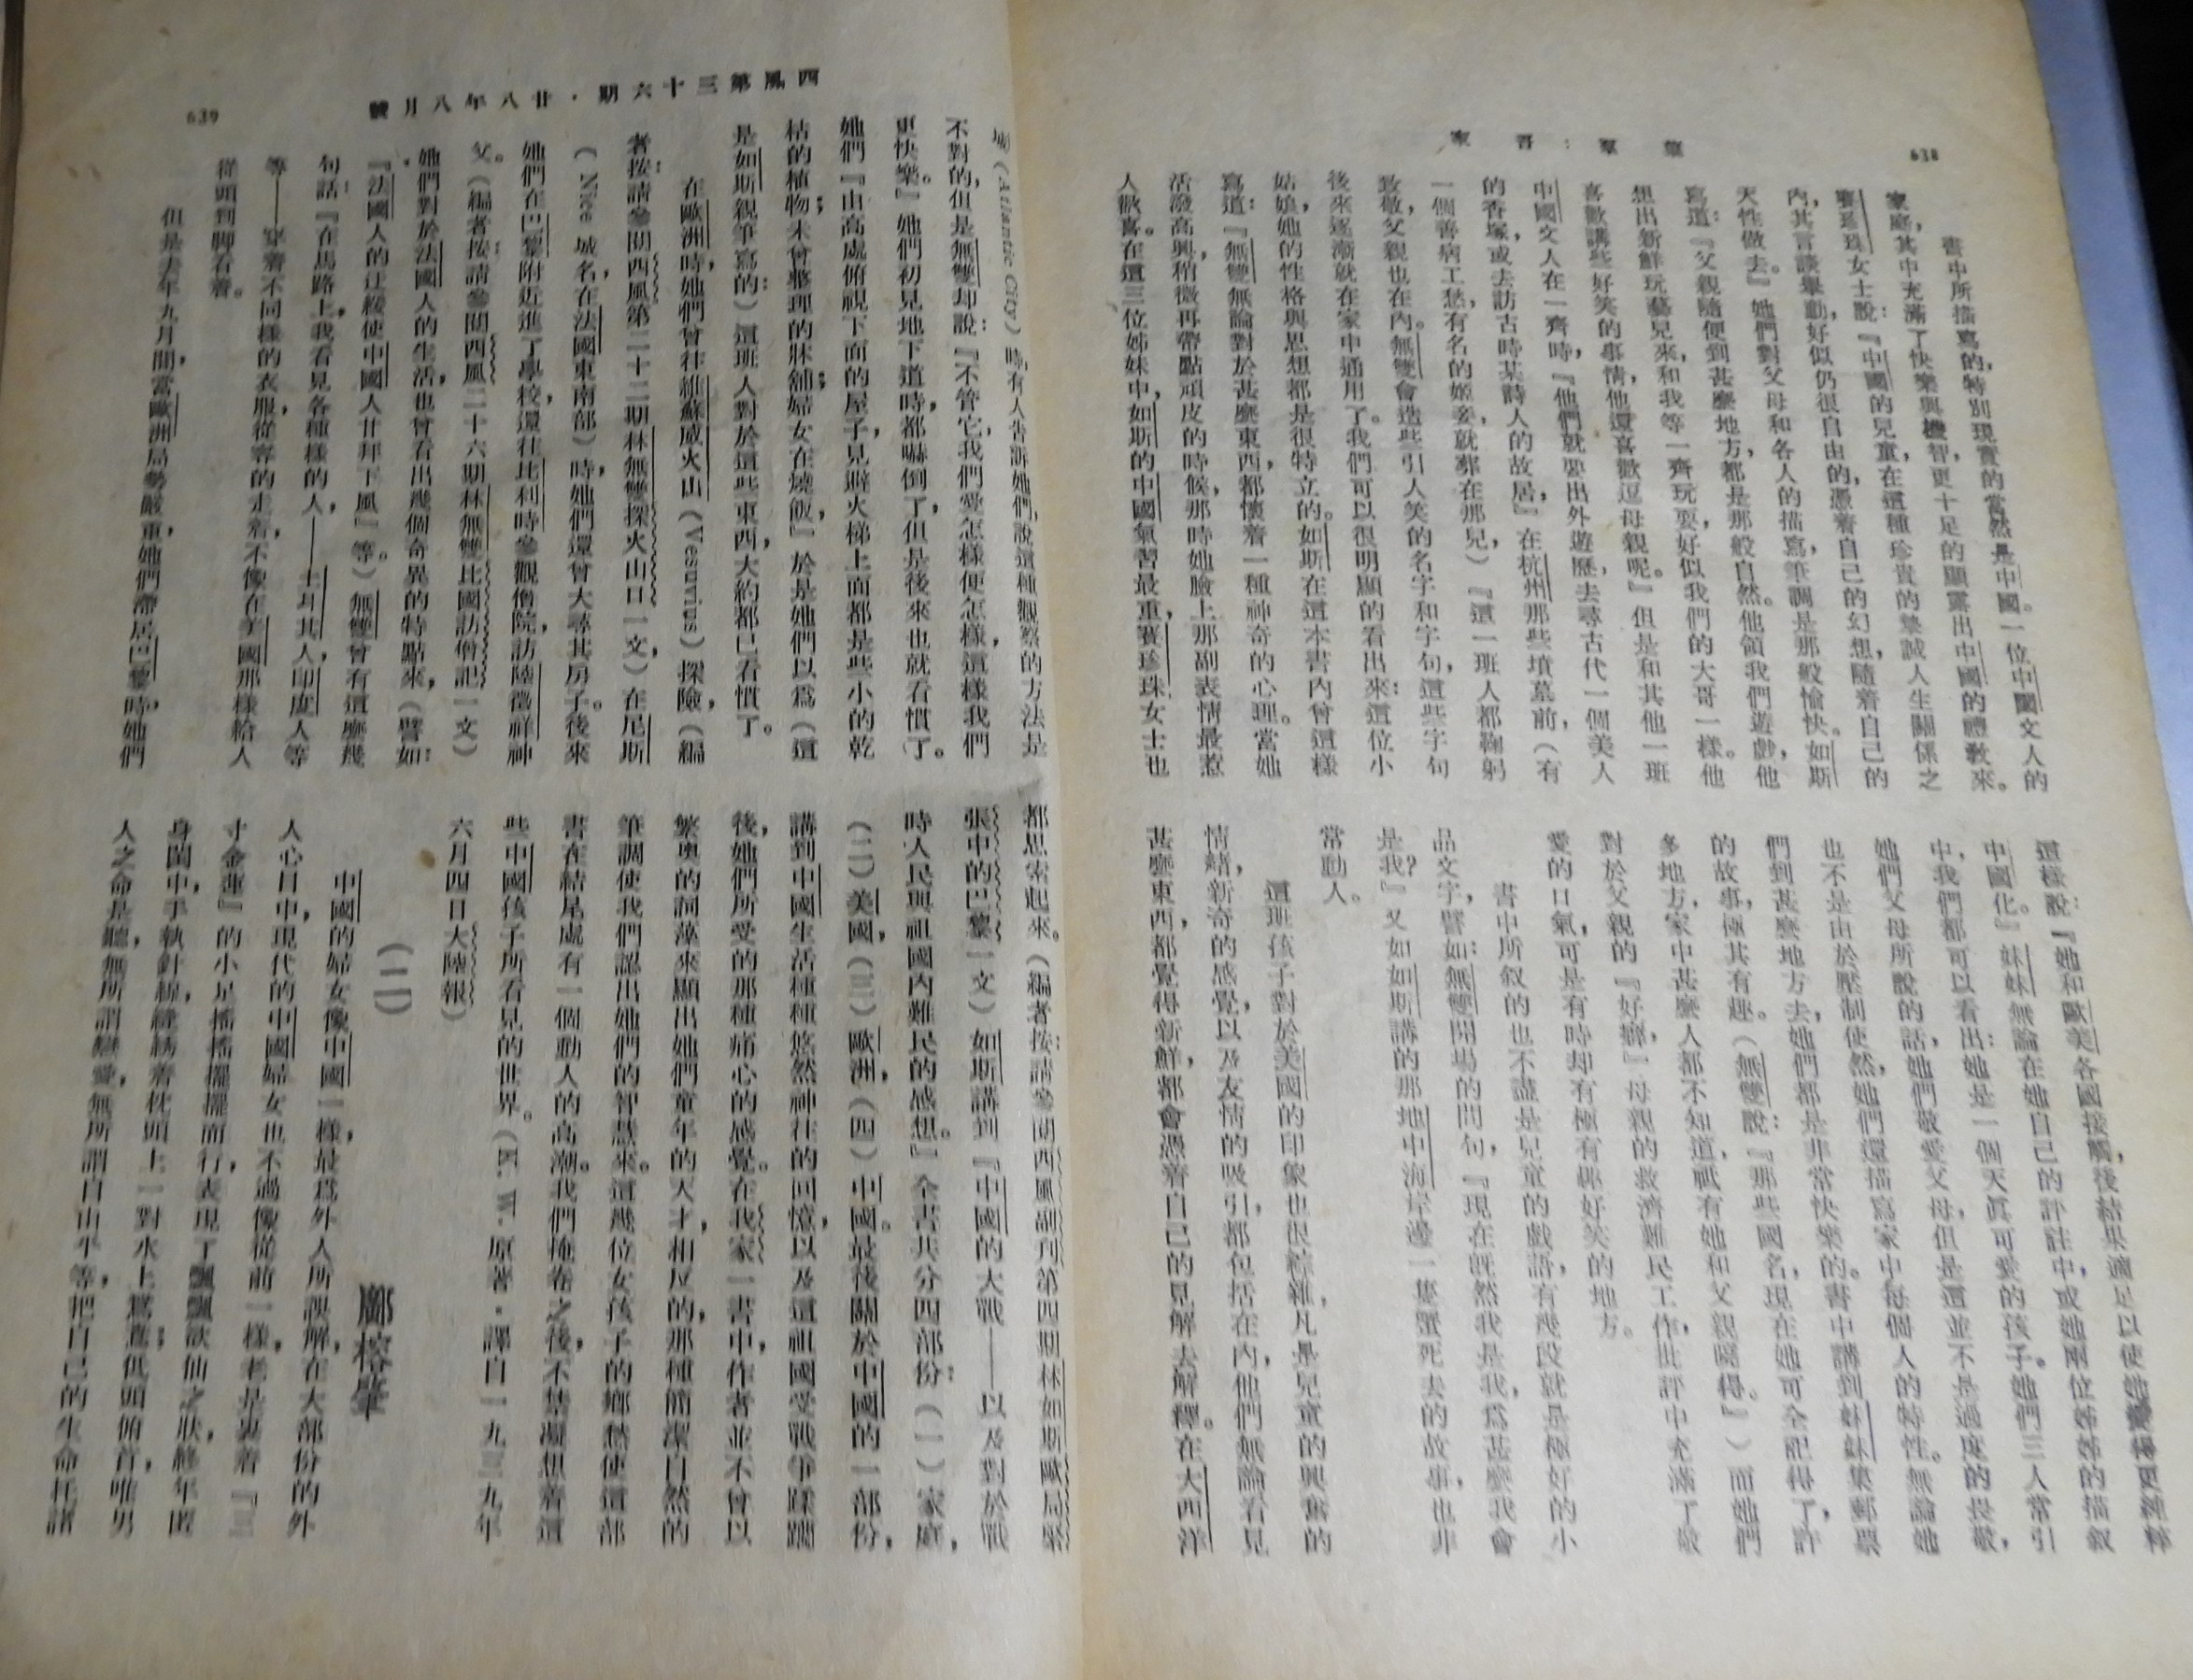 638
葉羣：吾家
書中所描寫的，特別現實的當然是中國。一位中國文人的
家庭，其中充滿了快樂與機智，更十足的顯露出中國的禮敎來。
賽珍珠女士說：『中國的兒童在這種珍貴的摯誠人生關係之
內，其言談舉動，好似仍很自由的，憑着自己的幻想，隨着自己的
天性做去。』她們對父母和各人的描寫，筆調是那般愉快。如斯
寫道：『父親隨便到甚麼地方，都是那般自然。他領我們遊戲，他
想出新鮮玩藝兒來，和我等一齊玩耍，好似我們的大哥一樣。他
喜歡講些好笑的事情，他還喜歡逗母親呢。』但是和其他一班
中國文人在一齊時，『他們就要出外遊歷，去尋古代一個美人
的香塚，或去訪古時某詩人的故居，』在杭州那些墳墓前，（有
一個善病工愁，有名的姬妾，就葬在那兒，）『這一班人都鞠躬
致敬，父親也在內。無雙會造些引人笑的名字和字句，這些字句
後來逐漸就在家中通用了。我們可以很明顯的看出來：這位小
姑娘，她的性格與思想都是很特立的。如斯在這本書內曾這樣
寫道：『無雙無論對於甚麼東西，都懷着一種神奇的心理。當她
活潑高興，稍微再帶點頑皮的時候，那時她臉上那副表情最惹
人歡喜。在這三位姊妹中，如斯的中國氣習最重，賽珍珠女士也
這樣說：『她和歐美各國接觸後，結果適足以使她變得更純粹
中國化。』妹妹無論在她自己的評註中，或她兩位姊姊的描敘
中，我們都可以看出：她是一個天眞可愛的孩子。她們三人常引
她們父母所說的話，她們敬愛父母，但是這並不是過度的畏敬，
也不是由於壓制使然，她們還描寫家中每個人的特性。無論她
們到甚麼地方去，她們都是非常快樂的。書中講到妹妹集郵票
的故事，極其有趣。（無雙說：『那些國名，現在她可全記得了，許
多地方，家中甚麼人都不知道，祇有她和父親曉得。』）而她們
對於父親的『好癖，』母親的救濟難民工作，批評中充滿了敬
愛的口氣，可是有時却有極有趣好笑的地方。
書中所敘的也不盡是兒童的戲語，有幾段就是極好的小
品文字，譬如：無雙開場的問句，『現在旣然我是我，爲甚麼我會
是我？』又如如斯講的那地中海岸邊一隻蟹死去的故事，也非
常動人。
這班孩子對於美國的印象也很綜雜，凡是兒童的興奮的
情緖，新奇的感覺，以及友情的吸引，都包括在內，他們無論看見
甚麼東西，都覺得新鮮，都會憑着自己的見解去解釋。在大西洋
西風第三十六期・廿八年八月號
639
城（Atlantic City）時，有人告訴她們，說這種觀察的方法是
不對的，但是無雙却說：『不管它，我們愛怎樣便怎樣，這樣我們
更快樂。』她們初見地下道時，都嚇倒了，但是後來也就看慣了。
她們『由高處俯視下面的屋子，見避火梯上面都是些小的乾
枯的植物；未曾整理的牀舖；婦女在燒飯，』於是她們以爲（這
是如斯親筆寫的：）這班人對於這些東西，大約都已看慣了。
在歐洲時，她們曾往維蘇威火山（Vesuvius）探險，（編
者按：請參閱西風第二十二期林無雙探火山口一文，）在尼斯
（Nice 城名，在法國東南部）時，她們還曾大尋其房子。後來
她們在巴黎附近進了學校，還往比利時參觀僧院，訪陸徵祥神
父。（編者按：請參閱西風二十六期林無雙比國訪僧記一文）
她們對於法國人的生活，也曾看出幾個奇異的特點來，（譬如：
『法國人的迂緩使中國人甘拜下風』等。）無雙曾有這麼幾
句話：『在馬路上，我看見各種樣的人——土耳其人，印度人等
等——穿着不同樣的衣服，從容的走着，不像在美國那樣給人
從頭到脚看着。
但是去年九月間，當歐洲局勢嚴重，她們滯居巴黎時，她們
都思索起來。（編者按：請參閱西風副刊第四期林如斯歐局緊
張中的巴黎一文）如斯講到『中國的大戰——以及對於戰
時人民與祖國內難民的感想。』全書共分四部份：（一）家庭，
（二）美國，（三）歐洲，（四）中國。最後關於中國的一部份，
講到中國生活種種悠然神往的回憶，以及這祖國受戰爭蹂躪
後，她們所受的那種痛心的感覺。在我家一書中，作者並不曾以
繁奥的詞藻來顯出她們童年的天才，相反的，那種簡潔自然的
筆調使我們認出她們的智慧來。這幾位女孩子的鄉愁使這部
書在結尾處有一個動人的高潮。我們掩卷之後，不禁凝想着這
些中國孩子所看見的世界。（K. W. 原著・譯自一九三九年
六月四日大陸報）
（二）
鄺榕肇
中國的婦女像中國一樣，最爲外人所誤解，在大部份的外
人心目中，現代的中國婦女也不過像從前一樣，老是裹着『三
寸金蓮』的小足搖搖擺擺而行，表現了飄飄欲仙之狀，終年匿
身閨中，手執針線，繡綉着枕頭上一對水上鴛鴦；低頭俯首，唯男
人之命是聽，無所謂戀愛，無所謂自由平等，把自己的生命托諸